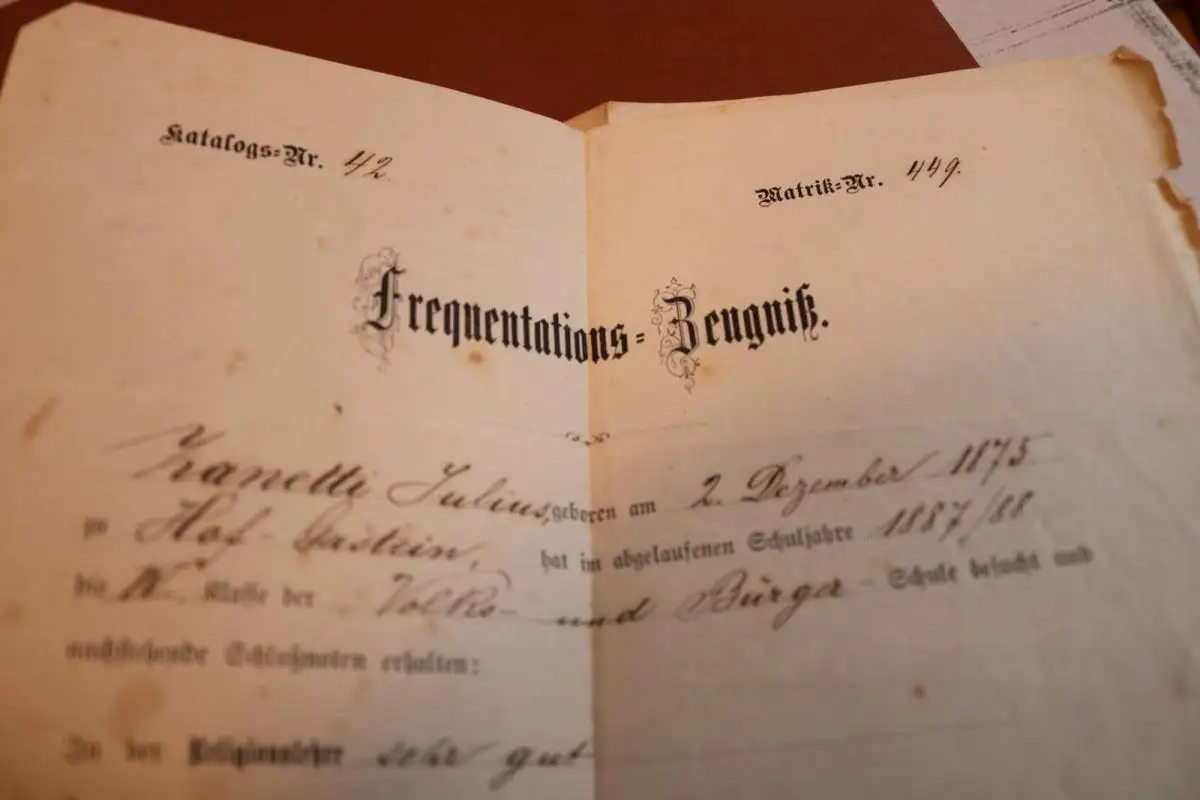 Katalogs=Nr. 42.
Matrik=Nr. 449.
Frequentations=Zeugniß.
Zanetti Julius, geboren am 2. Dezember 1875
zu Hof-Gastein, hat im abgelaufenen Schuljahre 1887/88
die IV. Klasse der Volks- und Bürger-Schule besucht und
nachstehende Schlußnoten erhalten:
In der Religionslehre sehr gut